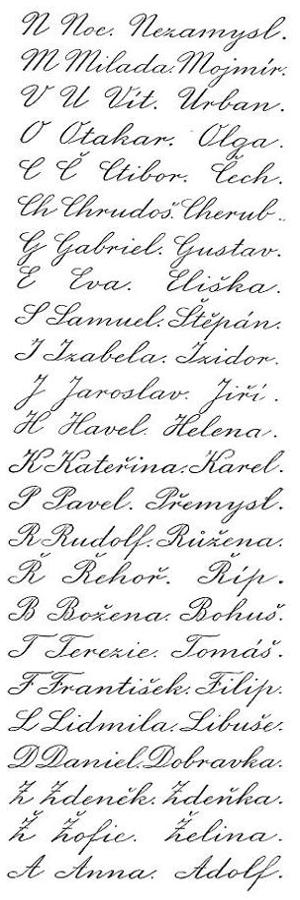 N Noc. Nezamysl.
M Milada. Mojmír.
V U Vít. Urban.
O Otakar. Olga.
C Č Ctibor. Čech.
Ch Chrudoš. Cherub.
G Gabriel. Gustav.
E Eva. Eliška.
S Samuel. Štěpán.
I Izabela. Izidor.
J Jaroslav. Jiří.
H Havel. Helena.
K Kateřina. Karel.
P Pavel. Přemysl.
R Rudolf. Růžena.
Ř Řehoř. Říp.
B Božena. Bohuš.
T Terezie. Tomáš.
F František. Filip.
L Lidmila. Libuše.
D Daniel. Dobravka.
Z Zdeněk. Zdeňka.
Ž Žofie. Želina.
A Anna. Adolf.